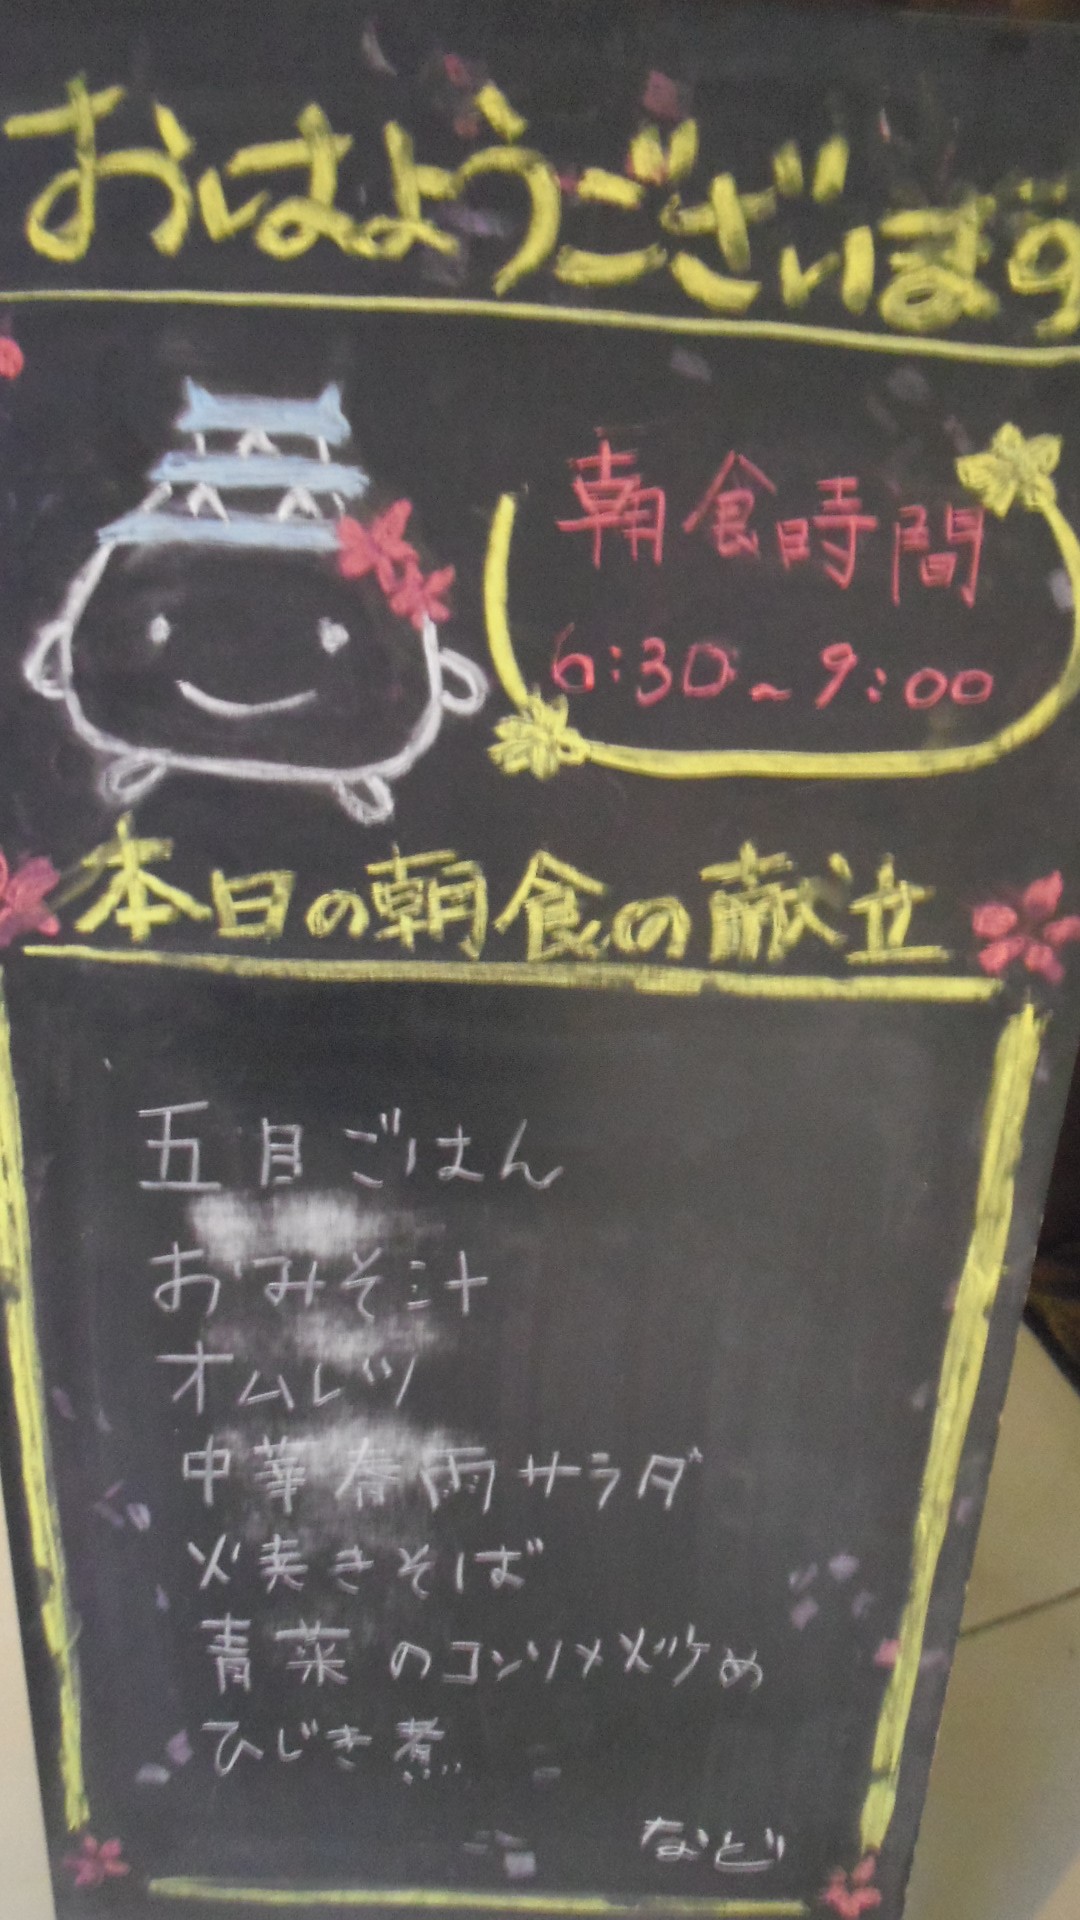 おはようございます
朝食時間
6:30~9:00
本日の朝食の献立
五目ごはん
おみそ汁
オムレツ
中華春雨サラダ
焼きそば
青菜のコンソメ炒め
ひじき煮
など